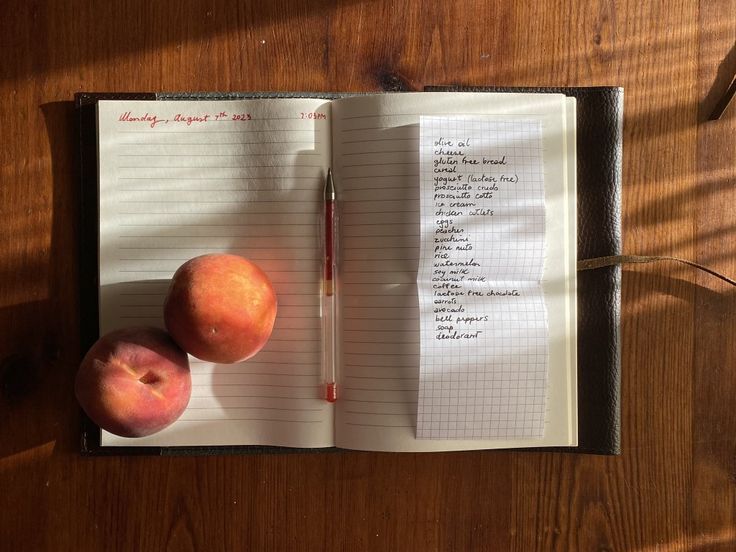 Monday, August 7th 2023
7:03PM
olive oil
cheese
gluten free bread
cereal
yogurt (lactose free)
prosciutto crudo
prosciutto cotto
ice cream
chicken cutlets
eggs
peaches
zucchini
pine nuts
rice
watermelon
soy milk
coconut milk
coffee
lactose free chocolate
carrots
avocado
bell peppers
soap
deodorant